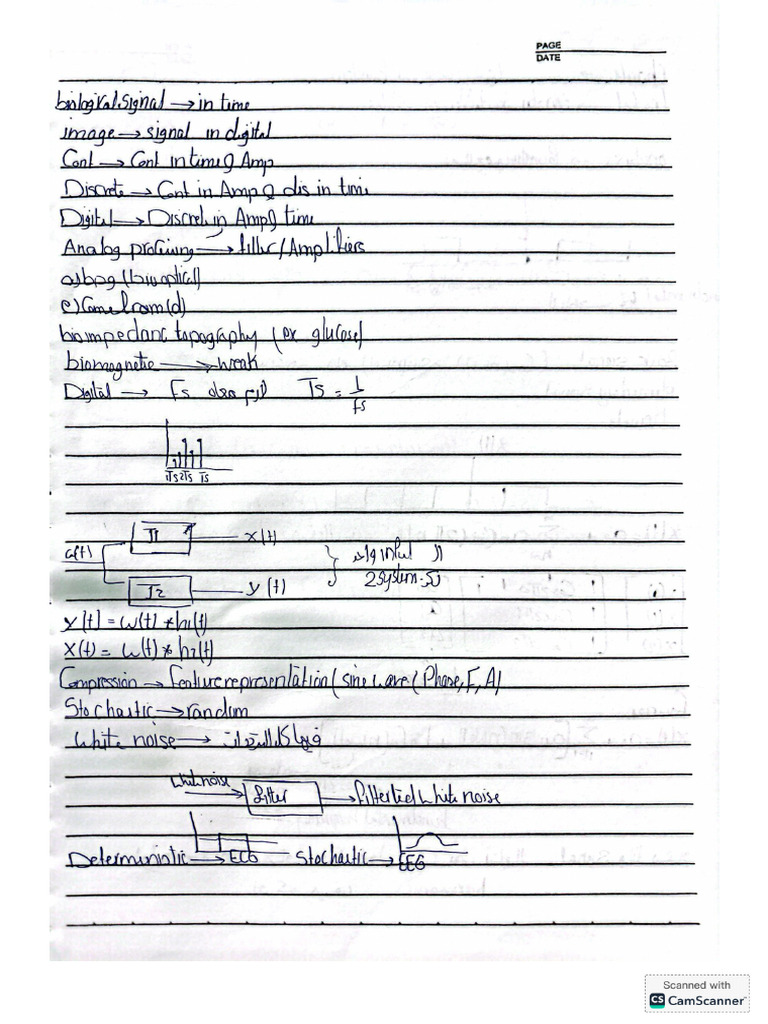 PAGE
DATE
biological signal → in time
image → signal in digital
Cont → Cont in time & Amp
Discrete → Cont in Amp & dis in time
Digital → Discret in Amp & time
Analog processing → filter/Amplifiers
(bio optical)
bioimpedanc topography (ex glucose)
biomagnetic → weak
Digital → Fs لازم معاه Ts = 1/fs
Ts 2Ts Ts
T1 x(t)
ω(t)
T2 y(t)
ال input واحد
2system
y(t) = ω(t) * h1(t)
x(t) = ω(t) * h2(t)
Compression → Feature representation (sine wave (Phase, F, A)
Stochastic → random
White noise → فيها كل الترددات
White noise → filter → filterted white noise
Deterministic → ECG Stochastic → EEG
Scanned with
CS CamScanner